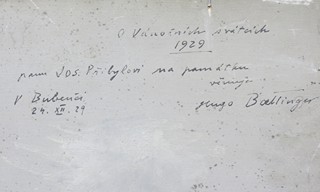 O Vánočních svátcích
1929
panu Jos. Přibylovi na památku
věnuje
V Bubenči Hugo Boettinger
24. XII. 29